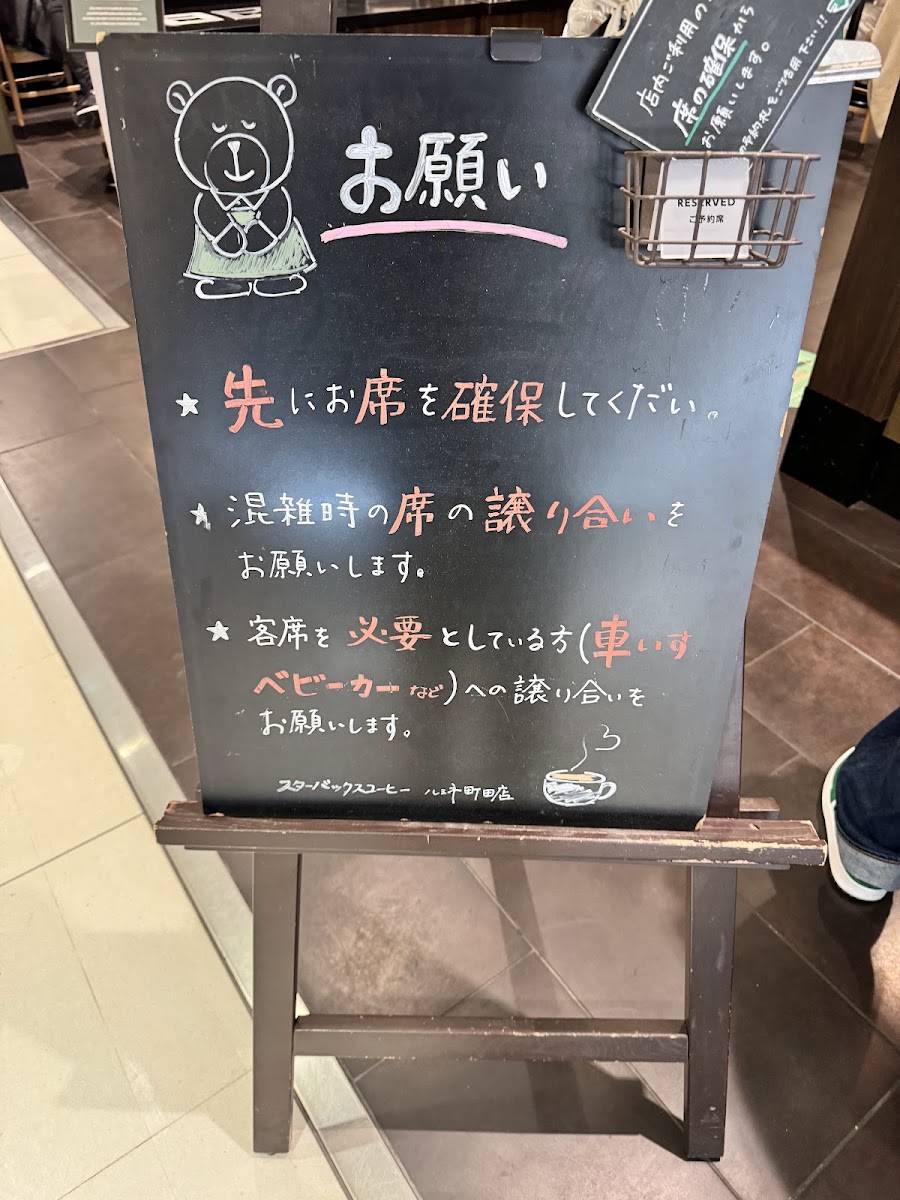 店内ご利用の
席の確保から
お願いします。
RESERVED
ご予約席
お願い
★ 先にお席を確保してください。
★ 混雑時の席の譲り合いを
お願いします。
★ 客席を必要としている方(車いす
ベビーカーなど)への譲り合いを
お願いします。
スターバックスコーヒー ルミネ町田店